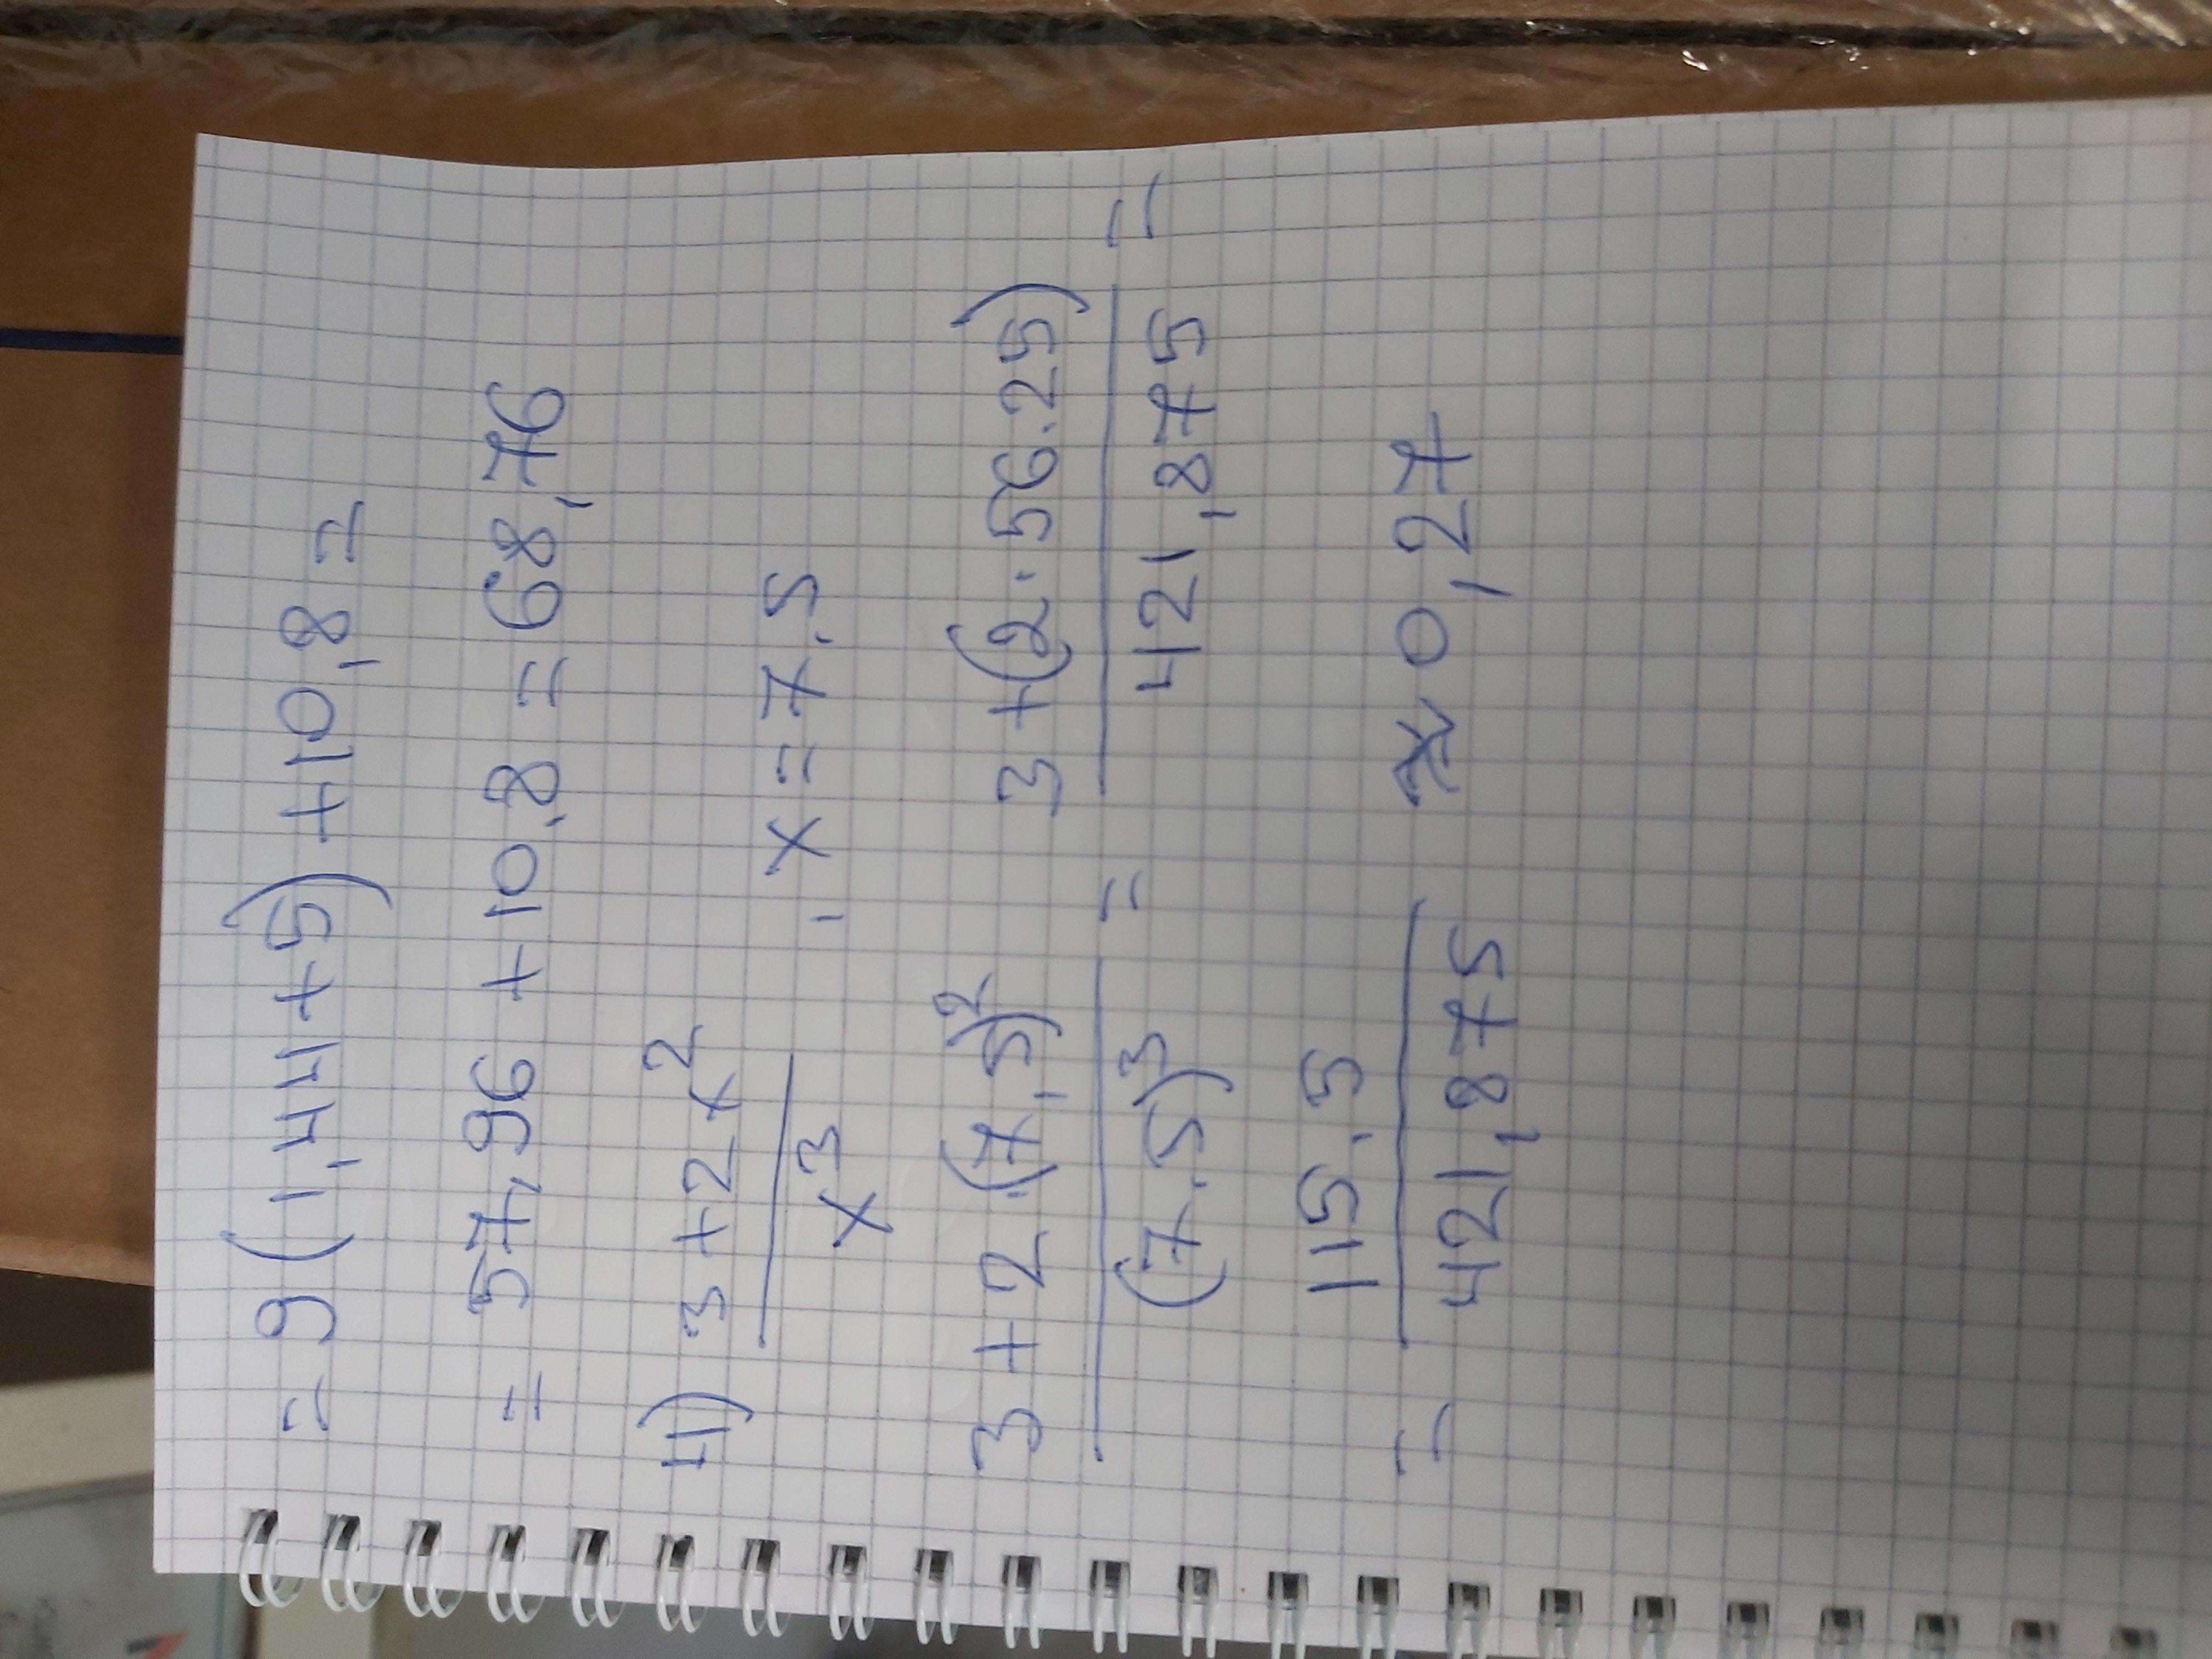 = 9 (1,44 + 5) + 10,8 =
= 57,96 + 10,8 = 68,76
4) 3 + 2x² / x³ , x = 7,5
3 + 2·(7,5)² / (7,5)³ = 3 + (2·56.25) / 421,875 =
= 115,5 / 421,875 ≈ 0,27